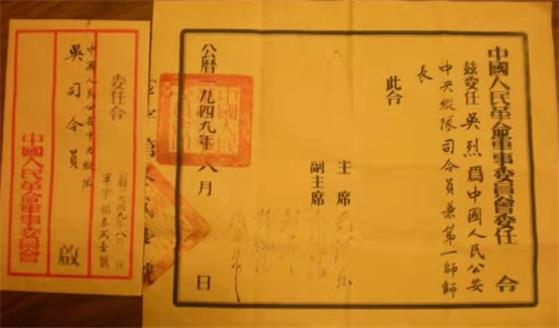 中國人民革命軍事委員會委任 令
茲委任 吳烈 爲中國人民公安
中央縱隊司令員兼第一師師
長
此令
主席
副主席
公曆一九四九年八月 日
字第
號
委任令
軍字第叁 壹號
中國人民公安中央縱隊
吳司令員 啟
中國人民革命軍事委員會